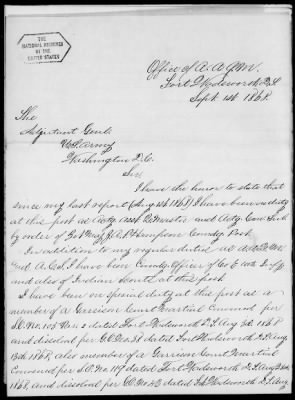 THE
NATIONAL ARCHIVES
OF THE
UNITED STATES
Office of A. A. Q. M.
Fort Wadsworth D.T.
Sept 1st 1868.
The
Adjutant Genl.
U.S. Army
Washington D.C.
Sir
I have the honor to state that
since my last report (Aug 1st 1868) I have been on duty
at this post as Actg. Asst. Qr Master and Actg Com Sub
by order of Bvt Maj J.A.P. Hampson Comdg Post.
In addition to my regular duties as A.A.Q.M.
and A.C.S. I have been Comdg Officer of Co E 10th Inf
and also of Indian Scouts at this post.
I have been on Special duty at this post as a
member of a Garrison Court Martial Convened per
S.O. No. 105 dated Fort Wadsworth D.T. Aug 3d 1868
and dissolved per G.O. No. 38 dated Fort Wadsworth D.T. Aug
13th 1868, also member of a Garrison Court Martial
Convened per S.O. No. 117 dated Fort Wadsworth D.T. Aug
1868, and dissolved per G.O. No. 43 dated Ft Wadsworth D.T. Aug